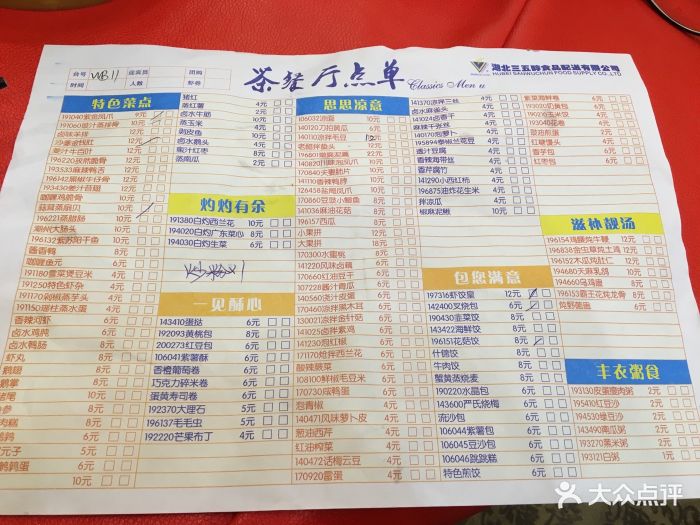 台号 WB11
时间
人数
团购
茶餐厅点单
Classics Menu
湖北三五醇食品配送有限公司
HUBEI SANWUCHUN FOOD SUPPLY CO.,LTD
特色菜点
191040紫金凤爪 9元
10元
卤味羊排 12元
12元
酱汁牛百叶 12元
196220豉然脆骨 10元
193533麻辣鸭舌 12元
196142黑椒牛仔骨 12元
193430姜汁百翅 12元
咖喱鸡脆骨 10元
蒜茸蒸扇贝 10元
196221蒸腊肠 10元
潮州大肠头 10元
196132紫苏阳干鱼 10元
酱香鸭 8元
咖喱鱼元 6元
191180雪菜煲豆米 4元
191250特色虾杂 4元
191170剁椒蒸芋头 4元
191150瑶柱蒸水蛋 4元
香辣河虾 6元
卤水鸡肫 6元
卤水鸭肠 6元
虾丸 8元
猪红 4元
蒸红薯 2元
卤水牛筋
蒸玉米
剥皮鱼
卤水鹅头
蜜汁红枣 8元
蒸南瓜 2元
灼灼有余
191380白灼西兰花 10元
194020白灼广东菜心 8元
194030白灼生菜 6元
炒粉 1
一见酥心
143410蛋挞 6元
192093黄桃包 6元
200273红豆包 6元
106041紫薯酥 6元
香橙葡萄卷 6元
巧克力碎米卷 6元
蛋黄寿司卷 6元
192370大理石 5元
196137毛毛虫 5元
192220芒果布丁 4元
思思凉意
140210刀拍黄瓜
老醋拌蛰头 12元
170840夫妻肺片 10元
香辣鸭脖 10元
126458盐焗凤爪 10元
170860豆豉小鲫鱼 8元
141036麻油花菇 8元
196157西瓜 8元
小果拼 18元
大果拼 18元
170300水蜜桃 8元
141220风味卤藕 8元
107228酱汁青瓜 8元
140560浇汁皮蛋 8元
140460凉拌黑木耳 8元
130027凉拌金针菇 6元
140025凉拌紫鸡 6元
141230焗红椒 6元
141170炝拌西兰花 6元
酸辣蕨菜 6元
108100鲜椒毛豆米 6元
170730咸鸭蛋 6元
泡青椒 4元
140471风味萝卜皮 4元
葱油西芹 4元
红油榨菜 4元
140472话梅云豆 4元
170920雷蛋 4元
141370凉拌三丝 4元
卤水麻雀头 4元
141024卤香干 4元
麻辣千张丝 4元
140170泡萝卜 4元
195894泰椒兰花豆 4元
酱汁豆腐 4元
香辣海带丝 4元
香芹腐竹 4元
141290小西红柿 4元
196875油炸花生米 4元
拌凉瓜 4元
椒麻泥鳅 10元
包您满意
197316虾饺皇 12元
142400叉烧包 6元
190430韭菜饺 6元
143422海鲜饺 6元
196151花菇饺 6元
什锦饺 6元
牛肉饺 6元
蟹黄蒸烧麦 6元
190220水晶包 6元
143600严氏烧梅 6元
流沙包 6元
106044紫薯包 6元
106045豆沙包 6元
106046跳跳糕 6元
特色煎饺 6元
紫菜腐鲜卷 6元
193020奶黄包 6元
190210玉米饺 4元
190070香菇包 4元
豉油煎蛋 2元
红糖馒头 4元
香芋包 6元
红枣包 6元
滋补靓汤
196154鸡腰炖牛鞭 12元
196838金虫草炖土鸡 12元
196152木瓜炖肚仁 12元
194680天麻乳鸽 10元
194660乌鸡盅 8元
196153霸王花炖龙骨 8元
炖野菌盅 6元
丰衣粥食
193130皮蛋瘦肉粥 2元
195410红豆沙 2元
194530绿豆沙 2元
143490南瓜粥 2元
193270黑米粥 2元
193121白粥 1元
大众点评